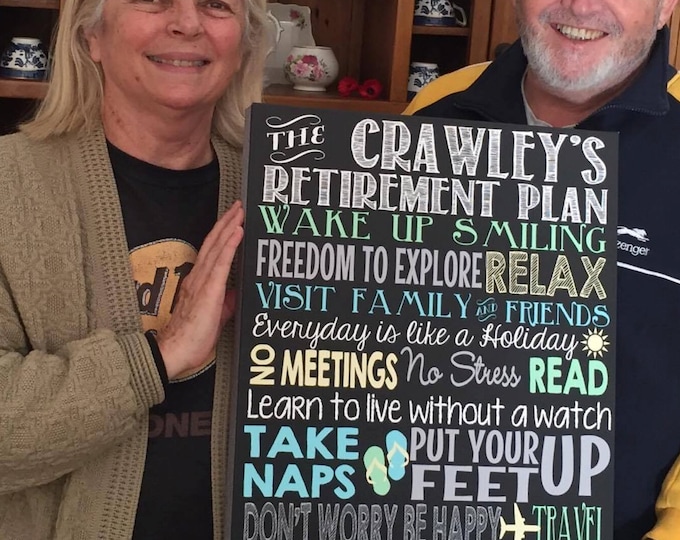 THE CRAWLEY'S
RETIREMENT PLAN
WAKE UP SMILING
FREEDOM TO EXPLORE RELAX
VISIT FAMILY AND FRIENDS
Everyday is like a Holiday
NO MEETINGS No Stress READ
Learn to live without a watch
TAKE NAPS PUT YOUR FEET UP
DON'T WORRY BE HAPPY TRAVEL